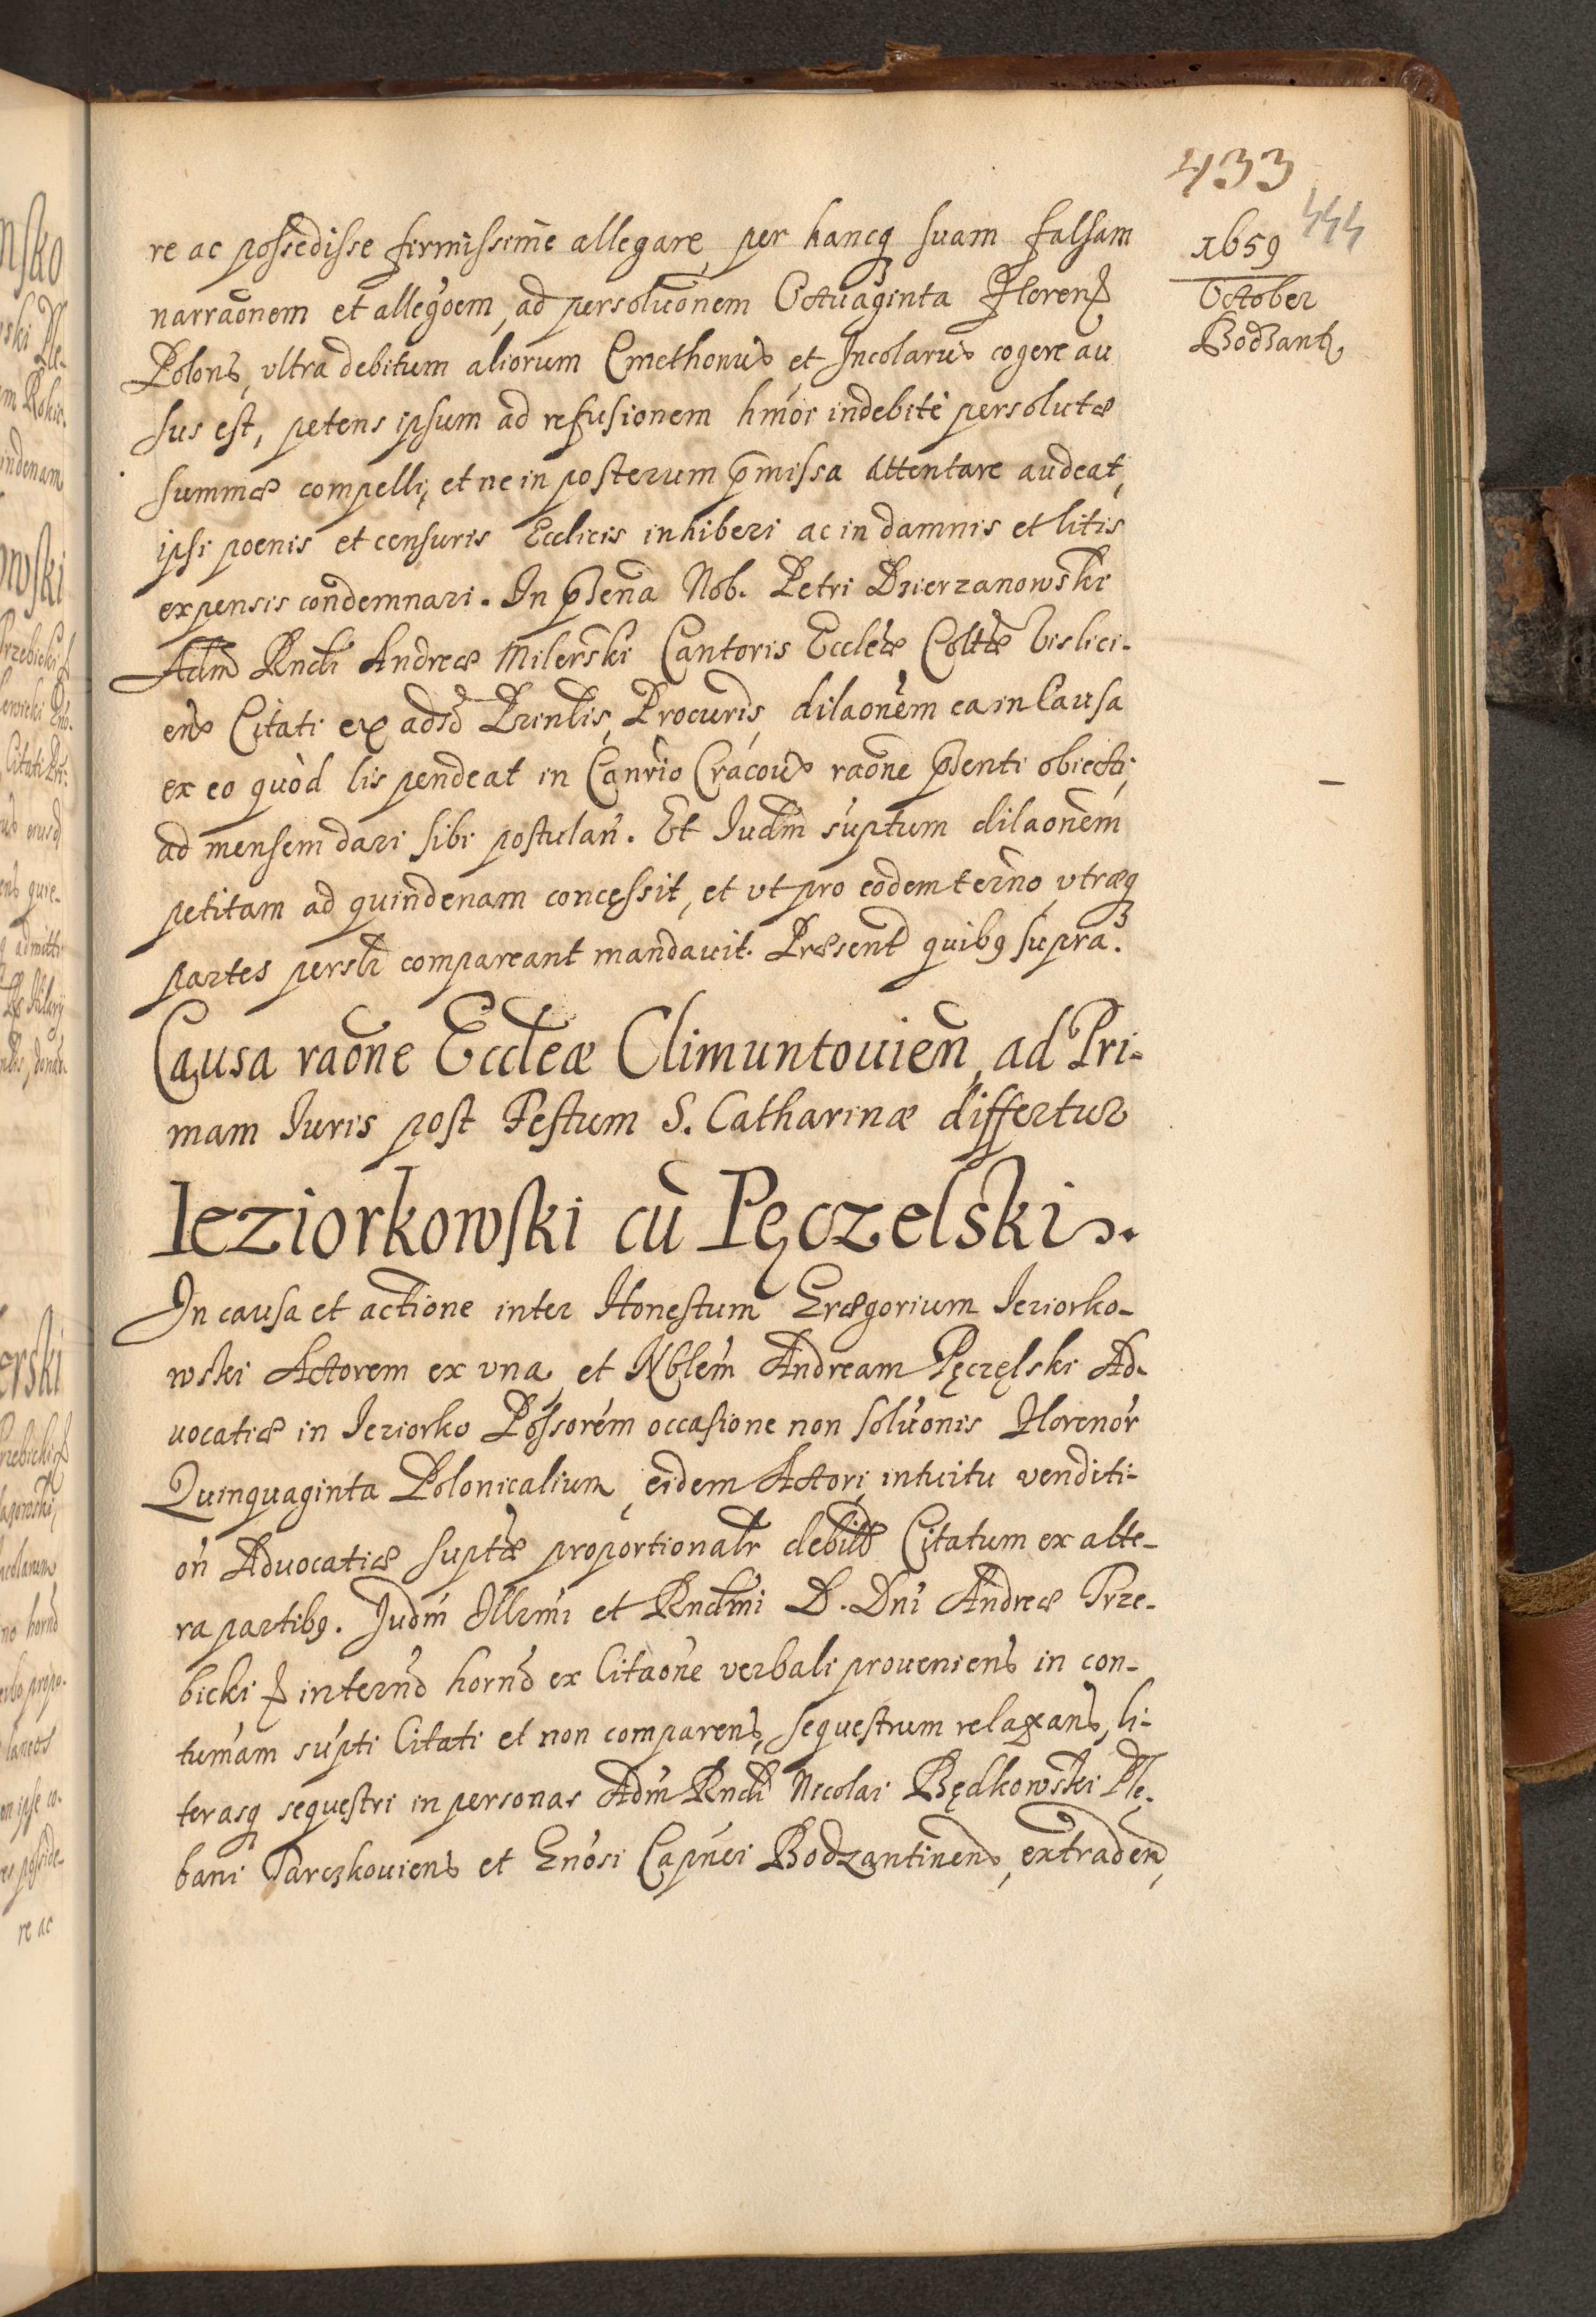 433
444
1659
October
Bodzant
re ac possedisse firmissime allegare, per hancq suam falsam
narraõnem et alleg̃oem, ad persoluõnem Octuaginta Floren
Polons, vltra debitum aliorum Cmethonus et Incolarus cogere au
sus est, petens ipsum ad refusionem hmõi indebitè persolutæ
summæ compelli, et ne in posterum p̃missa attentare audeat,
ipsi poenis et censuris Ecclicis inhiberi ac in damnis et litis
expensis condemnari. In p̃sena Nob. Petri Dzierzanowski
Adm Rndi Andreæ Milerski Cantoris Eccleæ Coltæ Vislici-
ens Citati ex adso Prinlis, Procuris, dilaõnem ea in Causa
ex eo quòd lis pendeat in Canrio Cracou raõne p̃senti obiecti,
ad mensem dari sibi postulañ. Et Iudm suptum dilaõnem
petitam ad quindenam concessit, et vt pro eodem termo, vtræq
partes perslr compareant mandauit. Præsent quibq supra.
Causa raõne Eccleæ Climuntouieñ, ad Pri-
mam Iuris post Festum S. Catharinæ differtur
Ieziorkowski cũ Pęczelski.
In causa et actione inter Honestum Grægorium Ieziorko-
wski Actorem ex vna, et Nblem Andream Pęczęlski Ad-
uocatiæ in Ieziorko Possorem occasione non soluõnis Florenor
Quinquaginta Polonicalium, eidem Actori, intuitu venditi-
oñ Aduocatiæ suptæ proportionalr debit Citatum ex alte-
ra partibq. Iudm Illrmi et Rndmi D. Dni Andreæ Trze-
bicki in termo horno ex Citaõne verbali proueniens in con-
tumam supti Citati et non comparens, sequestrum relaxans, li-
terasq sequestri in personas Adm Rndi Nicolai Będkowski Ple-
bani Tarczkouiens et Gnosi Capnei Bodzantinens, extradeñ,